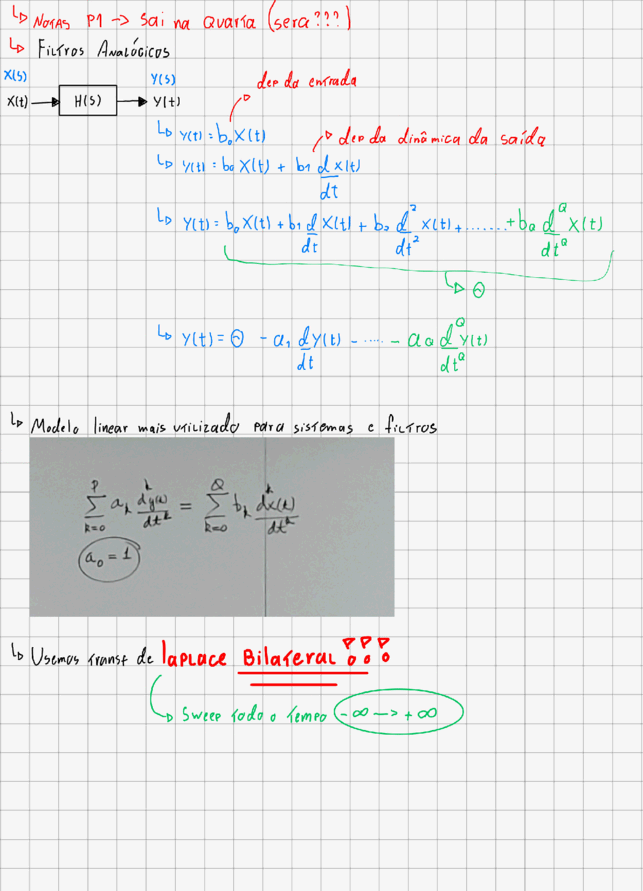 ↳ Notas P1 -> sai na Quarta (sera???)
↳ Filtros Analógicos
X(s) Y(s)
x(t) → H(s) → y(t)
dep da entrada
↳ y(t) = b₀x(t)
dep da dinâmica da saída
↳ y(t) = b₀ x(t) + b₁ d x(t)/dt
↳ y(t) = b₀ x(t) + b₁ d/dt x(t) + b₂ d²/dt² x(t) + ....... + bQ d^Q/dt^Q x(t)
↳ Θ
↳ y(t) = Θ - a₁ d/dt y(t) - ..... - aQ d^Q/dt^Q y(t)
↳ Modelo linear mais utilizado para sistemas e filtros
∑_{k=0}^{P} a_k d^k y(t)/dt^k = ∑_{k=0}^{Q} b_k d^k x(t)/dt^k
a₀ = 1
↳ Usemos transf de laplace Bilateral !!!
↳ Sweep todo o tempo -∞ -> +∞